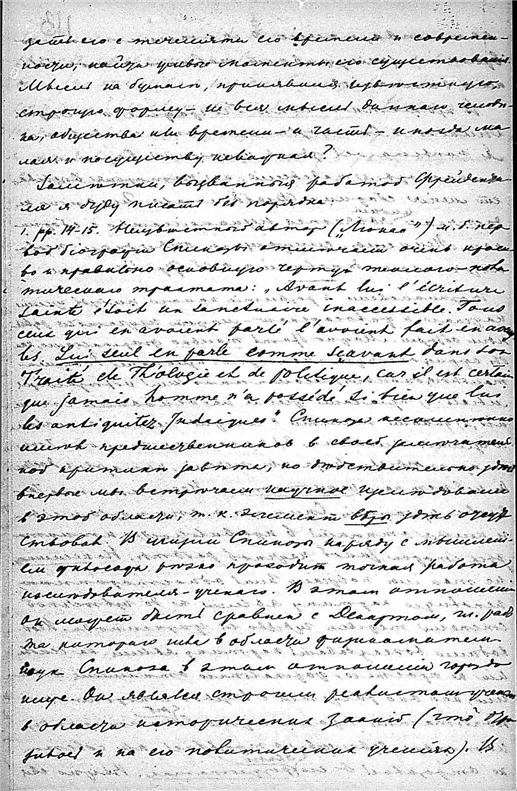 зать его с течениями его времени и современ-
ности, найти живые моменты его существования.
Мысль на бумаге, принявшая известную
строгую форму – не вся мысль данного челове-
ка, общества или времени – и часть – иногда ма-
лая и по существу неважная?
Заметки, вызванныя работой Фрейденталя
я буду писать без порядка
1, pp. 14-15. Неизвестный автор (Люкас?) м. б. пер-
вой биографии Спинозы отмечает очень краси-
во и правильно основную черту теолого-поли-
тического трактата: „Avant lui l'écriture
sainte étoit un sanctuaire inaccessible. Tous
ceux qui en avoient parlé l'avoient fait en aveu-
gles. Lui seul en parle comme sçavant dans son
Traité de Théologie et de politique, car il est certain
que jamais homme n'a possédé si bien que lui
les antiquitez Judaiques". Спиноза несомненно
имел предшественников в своей замечатель-
ной критике завета, но действительно здесь
впервые мы встречаем научное исследование
в этой области, т. к. элемент веры здесь отсут-
ствовал. В жизни Спинозы наряду с мышлени-
ем философа резко проходит точная работа
исследователя-ученаго. В этом отношении
он может быть сравнен с Декартом, гл. рабо-
та котораго шла в области физикоматем.
наук Спиноза в этом отношении гораздо
ниже. Он являлся строгим реалистом ученым
в области исторических знаний (что отра-
зилось и на его политических учениях). В